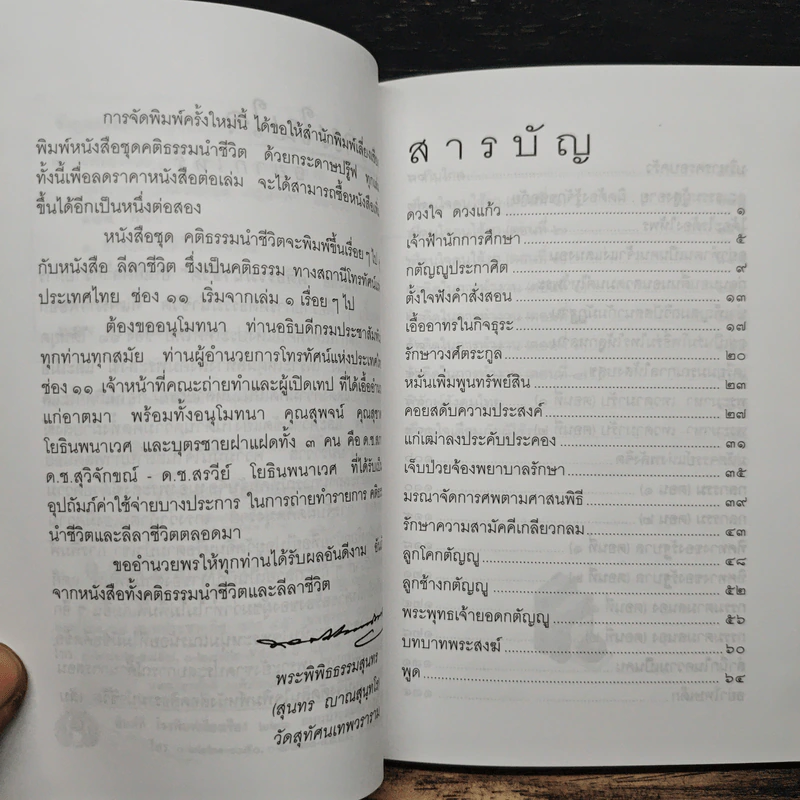 การจัดพิมพ์ครั้งใหม่นี้ ได้ขอให้สำนักพิมพ์เลี่ยงเชียง
พิมพ์หนังสือชุดคติธรรมนำชีวิต ด้วยกระดาษปรู๊ฟ
ทั้งนี้เพื่อลดราคาหนังสือต่อเล่ม จะได้สามารถซื้อหนังสือ
ขึ้นได้อีกเป็นหนึ่งต่อสอง
หนังสือชุด คติธรรมนำชีวิตจะพิมพ์ขึ้นเรื่อย ๆ ไป
กับหนังสือ ลีลาชีวิต ซึ่งเป็นคติธรรม ทางสถานีโทรทัศน์
ประเทศไทย ช่อง ๑๑ เริ่มจากเล่ม ๑ เรื่อย ๆ ไป
ต้องขออนุโมทนา ท่านอธิบดีกรมประชาสัมพันธ์
ทุกท่านทุกสมัย ท่านผู้อำนวยการโทรทัศน์แห่งประเทศไทย
ช่อง ๑๑ เจ้าหน้าที่คณะถ่ายทำและผู้เปิดเทป ที่ได้เอื้อ
แก่อาตมา พร้อมทั้งอนุโมทนา คุณสุพจน์
โยธินพนาเวศ และบุตรชายฝาแฝดทั้ง ๓ คน คือ
ด.ช.สุวิจักขณ์ - ด.ช.สรวีย์ โยธินพนาเวศ ที่ได้รับเป็น
อุปถัมภ์ค่าใช้จ่ายบางประการ ในการถ่ายทำรายการ คติธรรม
นำชีวิตและลีลาชีวิตตลอดมา
ขออำนวยพรให้ทุกท่านได้รับผลอันดีงาม
จากหนังสือทั้งคติธรรมนำชีวิตและลีลาชีวิต
พระพิพิธธรรมสุนทร
(สุนทร ญาณสุนฺทโร)
วัดสุทัศนเทพวราราม
สารบัญ
ดวงใจ ดวงแก้ว ๑
เจ้าฟ้านักการศึกษา ๕
กตัญญูประกาศิต ๙
ตั้งใจฟังคำสั่งสอน ๑๓
เอื้ออาทรในกิจธุระ ๑๗
รักษาวงศ์ตระกูล ๒๐
หมั่นเพิ่มพูนทรัพย์สิน ๒๓
คอยสดับความประสงค์ ๒๗
แก่เฒ่าลงประคับประคอง ๓๑
เจ็บป่วยจ้องพยาบาลรักษา ๓๕
มรณาจัดการศพตามศาสนพิธี ๓๙
รักษาความสามัคคีเกลียวกลม ๔๓
ลูกโคกตัญญู ๔๘
ลูกช้างกตัญญู ๕๒
พระพุทธเจ้ายอดกตัญญู ๕๖
บทบาทพระสงฆ์ ๖๐
พูด ๖๔